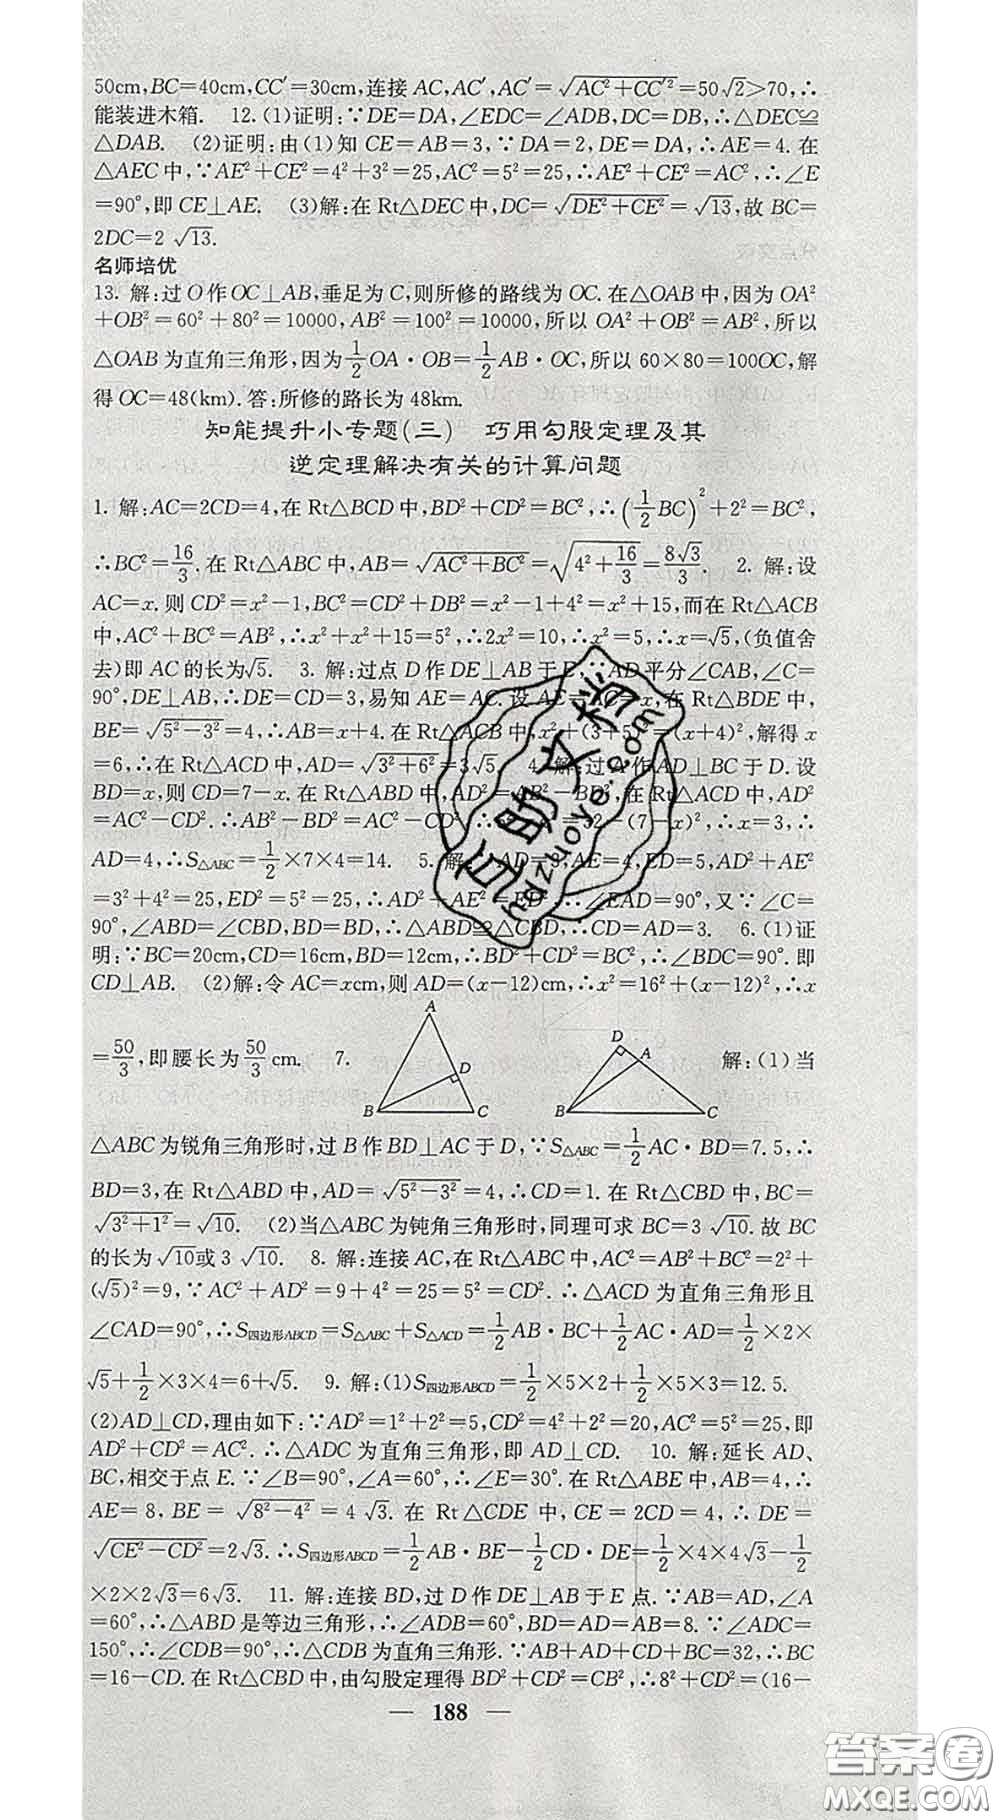 50cm,BC=40cm,CC′=30cm,连接 AC,AC′,AC′=√(AC²+CC′²)=50√2>70,∴
能装进木箱. 12.(1)证明:∵DE=DA,∠EDC=∠ADB,DC=DB,∴△DEC≌
△DAB. (2)证明:由(1)知 CE=AB=3,∵DA=2,DE=DA,∴AE=4.在
△AEC中,∵AE²+CE²=4²+3²=25,AC²=5²=25,∴AE²+CE²=AC²,∴∠E
=90°,即 CE⊥AE. (3)解:在 Rt△DEC 中,DC=√(DE²+CE²)=√13,故 BC=
2DC=2√13.
名师培优
13. 解:过 O 作 OC⊥AB,垂足为 C,则所修的路线为 OC.在△OAB 中,因为 OA²
+OB²=60²+80²=10000,AB²=100²=10000,所以 OA²+OB²=AB²,所以
△OAB 为直角三角形,因为1/2OA·OB=1/2AB·OC,所以 60×80=100OC,解
得 OC=48(km).答:所修的路长为 48km.
知能提升小专题(三) 巧用勾股定理及其
逆定理解决有关的计算问题
1. 解:AC=2CD=4,在 Rt△BCD 中,BD²+CD²=BC²,∴(1/2BC)²+2²=BC²,
∴BC²=16/3.在 Rt△ABC 中,AB=√(AC²+BC²)=√(4²+16/3)=8√3/3. 2. 解:设
AC=x.则 CD²=x²-1,BC²=CD²+DB²=x²-1+4²=x²+15,而在 Rt△ACB
中,AC²+BC²=AB²,∴x²+x²+15=5²,∴2x²=10,∴x²=5,∴x=√5,(负值舍
去)即 AC 的长为√5. 3. 解:过点 D 作 DE⊥AB 于 E,∵AD 平分∠CAB,∠C=
90°,DE⊥AB,∴DE=CD=3,易知 AE=AC.设 AE=AC=x,在 Rt△BDE 中,
BE=√(5²-3²)=4,∴AB=x+4.在 Rt△ACB 中,x²+(3+5)²=(x+4)²,解得 x
=6,∴在 Rt△ACD 中,AD=√(3²+6²)=3√5. 4. 解:过 A 作 AD⊥BC 于 D.设
BD=x,则 CD=7-x.在 Rt△ABD 中,AD²=AB²-BD²,在 Rt△ACD 中,AD²
=AC²-CD².∴AB²-BD²=AC²-CD² 32-(7-x)²,∴x=3,∴
AD=4,∴S△ABC=1/2×7×4=14. 5. 解:AD=3,AE=4,ED=5,AD²+AE²
=3²+4²=25,ED²=5²=25,∴AD²+AE²=ED²,∴∠EAD=90°,又∵∠C=
90°,∠ABD=∠CBD,BD=BD,∴△ABD≌△CBD,∴CD=AD=3. 6.(1)证
明:∵BC=20cm,CD=16cm,BD=12cm,∴BD²+CD²=BC²,∴∠BDC=90°.即
CD⊥AB. (2)解:令 AC=xcm,则 AD=(x-12)cm,∴x²=16²+(x-12)²,∴x
=50/3,即腰长为50/3cm. 7. A B C D D A B C 解:(1)当
△ABC 为锐角三角形时,过 B 作 BD⊥AC 于 D,∵S△ABC=1/2AC·BD=7.5,∴
BD=3,在 Rt△ABD 中,AD=√(5²-3²)=4,∴CD=1.在 Rt△CBD 中,BC=
√(3²+1²)=√10. (2)当△ABC 为钝角三角形时,同理可求 BC=3√10.故 BC
的长为√10或 3√10. 8. 解:连接 AC,在 Rt△ABC 中,AC²=AB²+BC²=2²+
(√5)²=9,∵AC²+AD²=9+4²=25=5²=CD².∴△ACD 为直角三角形且
∠CAD=90°,∴S四边形ABCD=S△ABC+S△ACD=1/2AB·BC+1/2AC·AD=1/2×2×
√5+1/2×3×4=6+√5. 9. 解:(1)S四边形ABCD=1/2×5×2+1/2×5×3=12.5.
(2)AD⊥CD,理由如下:∵AD²=1²+2²=5,CD²=4²+2²=20,AC²=5²=25,即
AD²+CD²=AC².∴△ADC 为直角三角形,即 AD⊥CD. 10. 解:延长 AD、
BC,相交于点 E.∵∠B=90°,∠A=60°,∴∠E=30°.在 Rt△ABE 中,AB=4,∴
AE=8,BE=√(8²-4²)=4√3.在 Rt△CDE 中,CE=2CD=4,∴DE=
√(CE²-CD²)=2√3.∴S四边形ABCD=1/2AB·BE-1/2CD·DE=1/2×4×4√3-1/2
×2×2√3=6√3. 11. 解:连接 BD,过 D 作 DE⊥AB 于 E 点.∵AB=AD,∠A
=60°,∴△ABD 是等边三角形,∴∠ADB=60°,BD=AD=AB=8.∵∠ADC=
150°,∴∠CDB=90°,∴△CDB 为直角三角形.∵AB+AD+CD+BC=32,∴BC
=16-CD.在 Rt△CBD 中,由勾股定理得 BD²+CD²=CB²,∴8²+CD²=(16-
— 188 —
互助文档
hdzuoye.com
答案圈
MXQE.COM